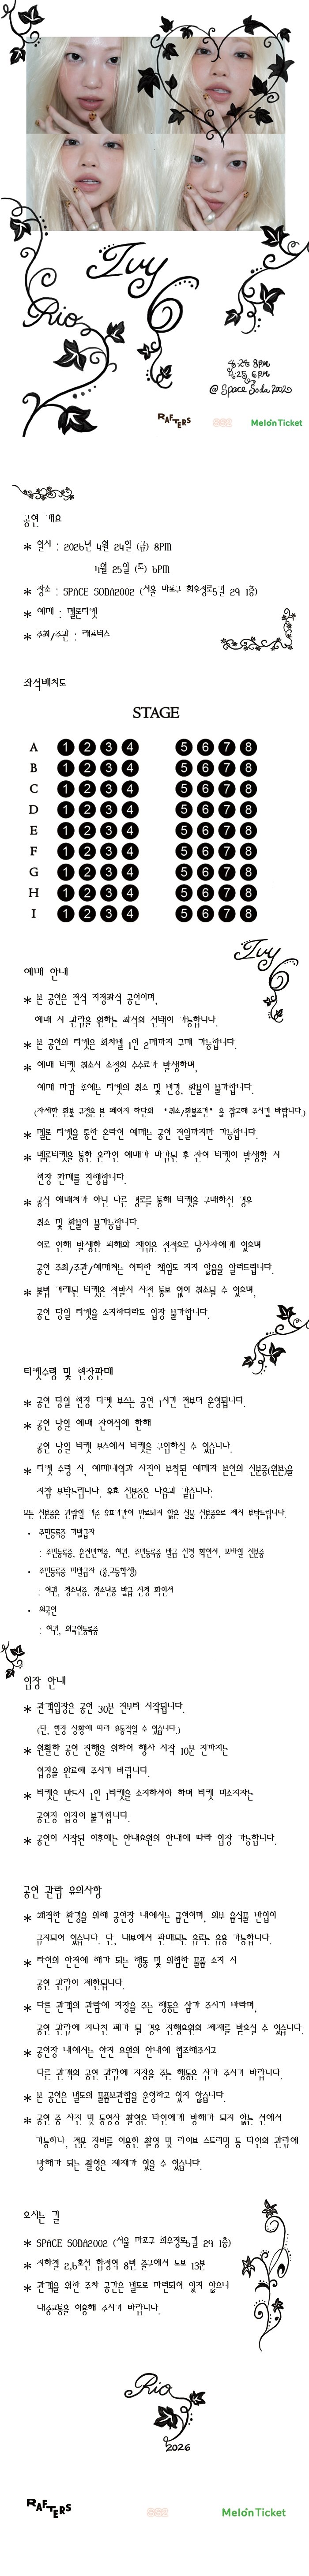 Ivy
6
Rio
4.24 8PM
4.25 6PM
@ Space Soda 2002
RAFTERS
Melon Ticket
공연 개요
* 일시 : 2026년 4월 24일 (금) 8PM
4월 25일 (토) 6PM
* 장소 : SPACE SODA2002 (서울 마포구 희우정로5길 29 1층)
* 예매 : 멜론티켓
* 주최/주관 : 래프터스
좌석배치도
STAGE
A 1 2 3 4 5 6 7 8
B 1 2 3 4 5 6 7 8
C 1 2 3 4 5 6 7 8
D 1 2 3 4 5 6 7 8
E 1 2 3 4 5 6 7 8
F 1 2 3 4 5 6 7 8
G 1 2 3 4 5 6 7 8
H 1 2 3 4 5 6 7 8
I 1 2 3 4 5 6 7 8
Ivy
6
예매 안내
* 본 공연은 전석 지정좌석 공연이며,
예매 시 관람을 원하는 좌석의 선택이 가능합니다.
* 본 공연의 티켓은 회차별 1인 2매까지 구매 가능합니다.
* 예매 티켓 취소시 소정의 수수료가 발생하며,
예매 마감 후에는 티켓의 취소 및 변경, 환불이 불가합니다.
(자세한 환불 규정은 본 페이지 하단의 '취소/환불조건'을 참고해 주시길 바랍니다.)
* 멜론 티켓을 통한 온라인 예매는 공연 전일까지만 가능합니다.
* 멜론티켓을 통한 온라인 예매가 마감된 후 잔여 티켓이 발생할 시
현장 판매를 진행합니다.
* 공식 예매처가 아닌 다른 경로를 통해 티켓을 구매하신 경우
취소 및 환불이 불가능합니다.
이로 인해 발생한 피해와 책임은 전적으로 당사자에게 있으며
공연 주최/주관/예매처는 어떠한 책임도 지지 않음을 알려드립니다.
* 불법 거래된 티켓은 적발시 사전 통보 없이 취소될 수 있으며,
공연 당일 티켓을 소지하더라도 입장 불가합니다.
티켓수령 및 현장판매
* 공연 당일 현장 티켓 부스는 공연 1시간 전부터 운영됩니다.
* 공연 당일 예매 잔여석에 한해
공연 당일 티켓 부스에서 티켓을 구입하실 수 있습니다.
* 티켓 수령 시, 예매내역과 사진이 부착된 예매자 본인의 신분증(원본)을
지참 부탁드립니다. 유효 신분증은 다음과 같습니다:
모든 신분증은 관람일 기준 유효기간이 만료되지 않은 실물 신분증으로 제시 부탁드립니다.
• 주민등록증 기발급자
: 주민등록증, 운전면허증, 여권, 주민등록증 발급 신청 확인서, 모바일 신분증
• 주민등록증 미발급자 (중,고등학생)
: 여권, 청소년증, 청소년증 발급 신청 확인서
• 외국인
: 여권, 외국인등록증
입장 안내
* 관객입장은 공연 30분 전부터 시작됩니다.
(단, 현장 상황에 따라 유동적일 수 있습니다.)
* 원활한 공연 진행을 위하여 행사 시작 10분 전까지는
입장을 완료해 주시기 바랍니다.
* 티켓은 반드시 1인 1티켓을 소지하셔야 하며 티켓 미소지자는
공연장 입장이 불가합니다.
* 공연이 시작된 이후에는 안내요원의 안내에 따라 입장 가능합니다.
공연 관람 유의사항
* 쾌적한 환경을 위해 공연장 내에서는 금연이며, 외부 음식물 반입이
금지되어 있습니다. 단, 내부에서 판매되는 음료는 음용 가능합니다.
* 타인의 안전에 해가 되는 행동 및 위험한 물품 소지 시
공연 관람이 제한됩니다.
* 다른 관객의 관람에 지장을 주는 행동은 삼가 주시기 바라며,
공연 관람에 지나친 폐가 될 경우 진행요원의 제재를 받으실 수 있습니다.
* 공연장 내에서는 안전 요원의 안내에 협조해주시고
다른 관객의 공연 관람에 지장을 주는 행동은 삼가 주시기 바랍니다.
* 본 공연은 별도의 물품보관함을 운영하고 있지 않습니다.
* 공연 중 사진 및 동영상 촬영은 타인에게 방해가 되지 않는 선에서
가능하나, 전문 장비를 이용한 촬영 및 라이브 스트리밍 등 타인의 관람에
방해가 되는 촬영은 제재가 있을 수 있습니다.
오시는 길
* SPACE SODA2002 (서울 마포구 희우정로5길 29 1층)
* 지하철 2,6호선 합정역 8번 출구에서 도보 13분
* 관객을 위한 주차 공간은 별도로 마련되어 있지 않으니
대중교통을 이용해 주시기 바랍니다.
Rio
2026
RAFTERS
Melon Ticket